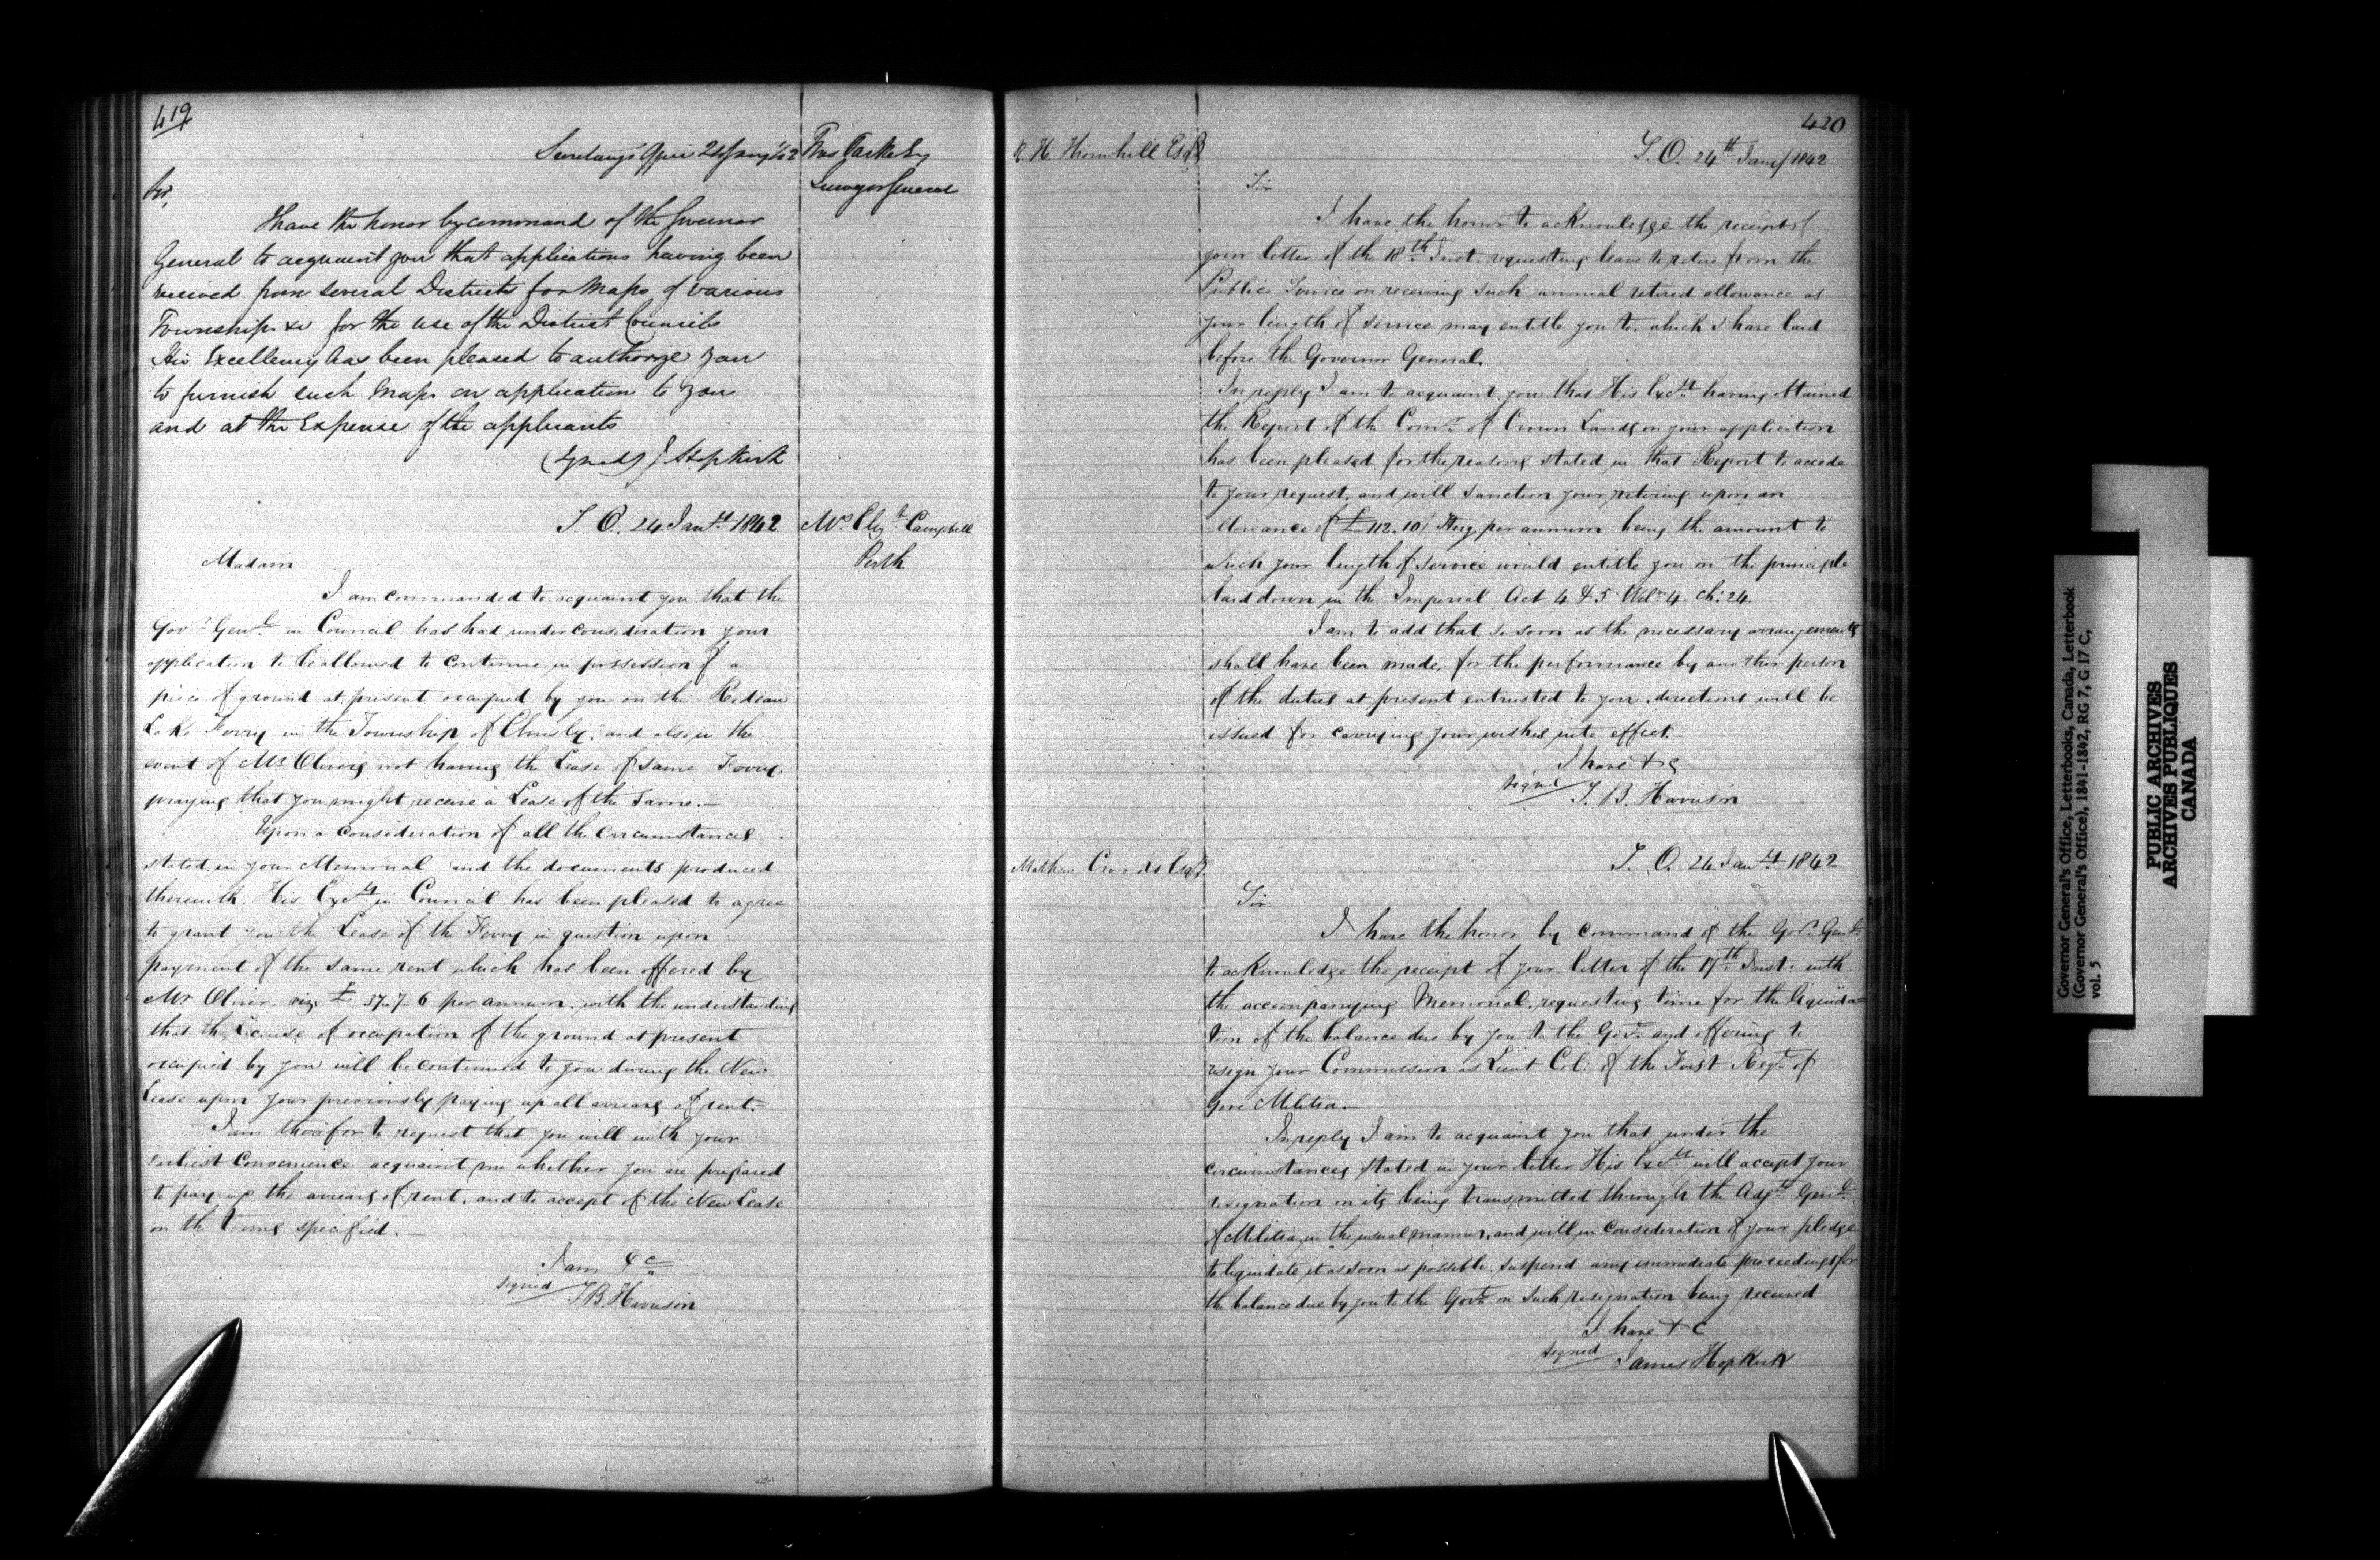 419
Secretary's Office 24 Jany 1842
Thos Parke Esq
Surveyor General
Sir,
I have the honor by command of the Governor
General to acquaint you that applications having been
received from several Districts for Maps of various
Townships &c for the use of the District Councils
His Excellency has been pleased to authorize you
to furnish such Maps on application to you
and at the Expense of the applicants
(Signed) J Hopkirk
S. O. 24 Jany 1842
Mrs Elizth Campbell
Perth
Madam
I am commanded to acquaint you that the
Govr Genl in Council has had under consideration your
application to be allowed to continue in possession of a
piece of ground at present occupied by you on the Rideau
Lake Ferry in the Township of Elmsly, and also in the
event of Mr Olivers not having the Lease of same Ferry,
praying that you might receive a Lease of the same.—
Upon a consideration of all the circumstances
stated in your Memorial and the documents produced
therewith His Excy in Council has been pleased to agree
to grant you the Lease of the Ferry in question upon
payment of the same rent which has been offered by
Mr Oliver. viz. £ 57-7-6 per annum, with the understanding
that the License of occupation of the ground at present
occupied by you will be continued to you during the New
Lease upon your previously paying up all arrears of rent.—
I am therefor to request that you will with your
earliest Convenience acquaint me whether you are prepared
to pay up the arrears of rent, and to accept of the New Lease
on the terms specified.—
I am &c
signed T.B. Harrison
420
R. H. Thornhill Esqr
S. O. 24th Jany 1842
Sir
I have the honor to acknowledge the receipt of
your letter of the 18th Inst. requesting leave to retire from the
Public Service on receiving such annual retired allowance as
your length of service may entitle you to, which I have laid
before the Governor General.
In reply I am to acquaint you that His Excy having obtained
the Report of the Comr of Crown Lands on your application
has been pleased for the reasons stated in that Report to accede
to your request, and will sanction your retiring upon an
allowance of £ 112.10/ Sterg per annum being the amount to
which your length of service would entitle you on the principle
laid down in the Imperial Act 4 & 5 Wilm 4 ch: 24.
I am to add that so soon as the necessary arrangements
shall have been made, for the performance by another person
of the duties at present entrusted to you, directions will be
issued for carrying your wishes into effect.—
I have &c
signed S. B. Harrison
Mathew Crooks Esqr
S. O. 24 Jany 1842
Sir
I have the honor by command of the Govr Genl
to acknowledge the receipt of your letter of the 17th Inst. with
the accompanying Memorial, requesting time for the liquida=
tion of the balance due by you to the Govt and offering to
resign your Commission as Lieut Col. of the First Regt of
Gore Militia.—
In reply I am to acquaint you that under the
circumstances stated in your letter His Excy will accept your
resignation on its being transmitted through the Adjt Genl
of Militia in the usual manner, and will in consideration of your pledge
to liquidate it as soon as possible, suspend any immediate proceedings for
the balance due by you to the Govt on such resignation being received
I have & c
signed James Hopkirk
Governor General's Office, Letterbooks, Canada, Letterbook
(Governor General's Office), 1841-1842, RG 7, G 17 C,
vol. 5
PUBLIC ARCHIVES
ARCHIVES PUBLIQUES
CANADA